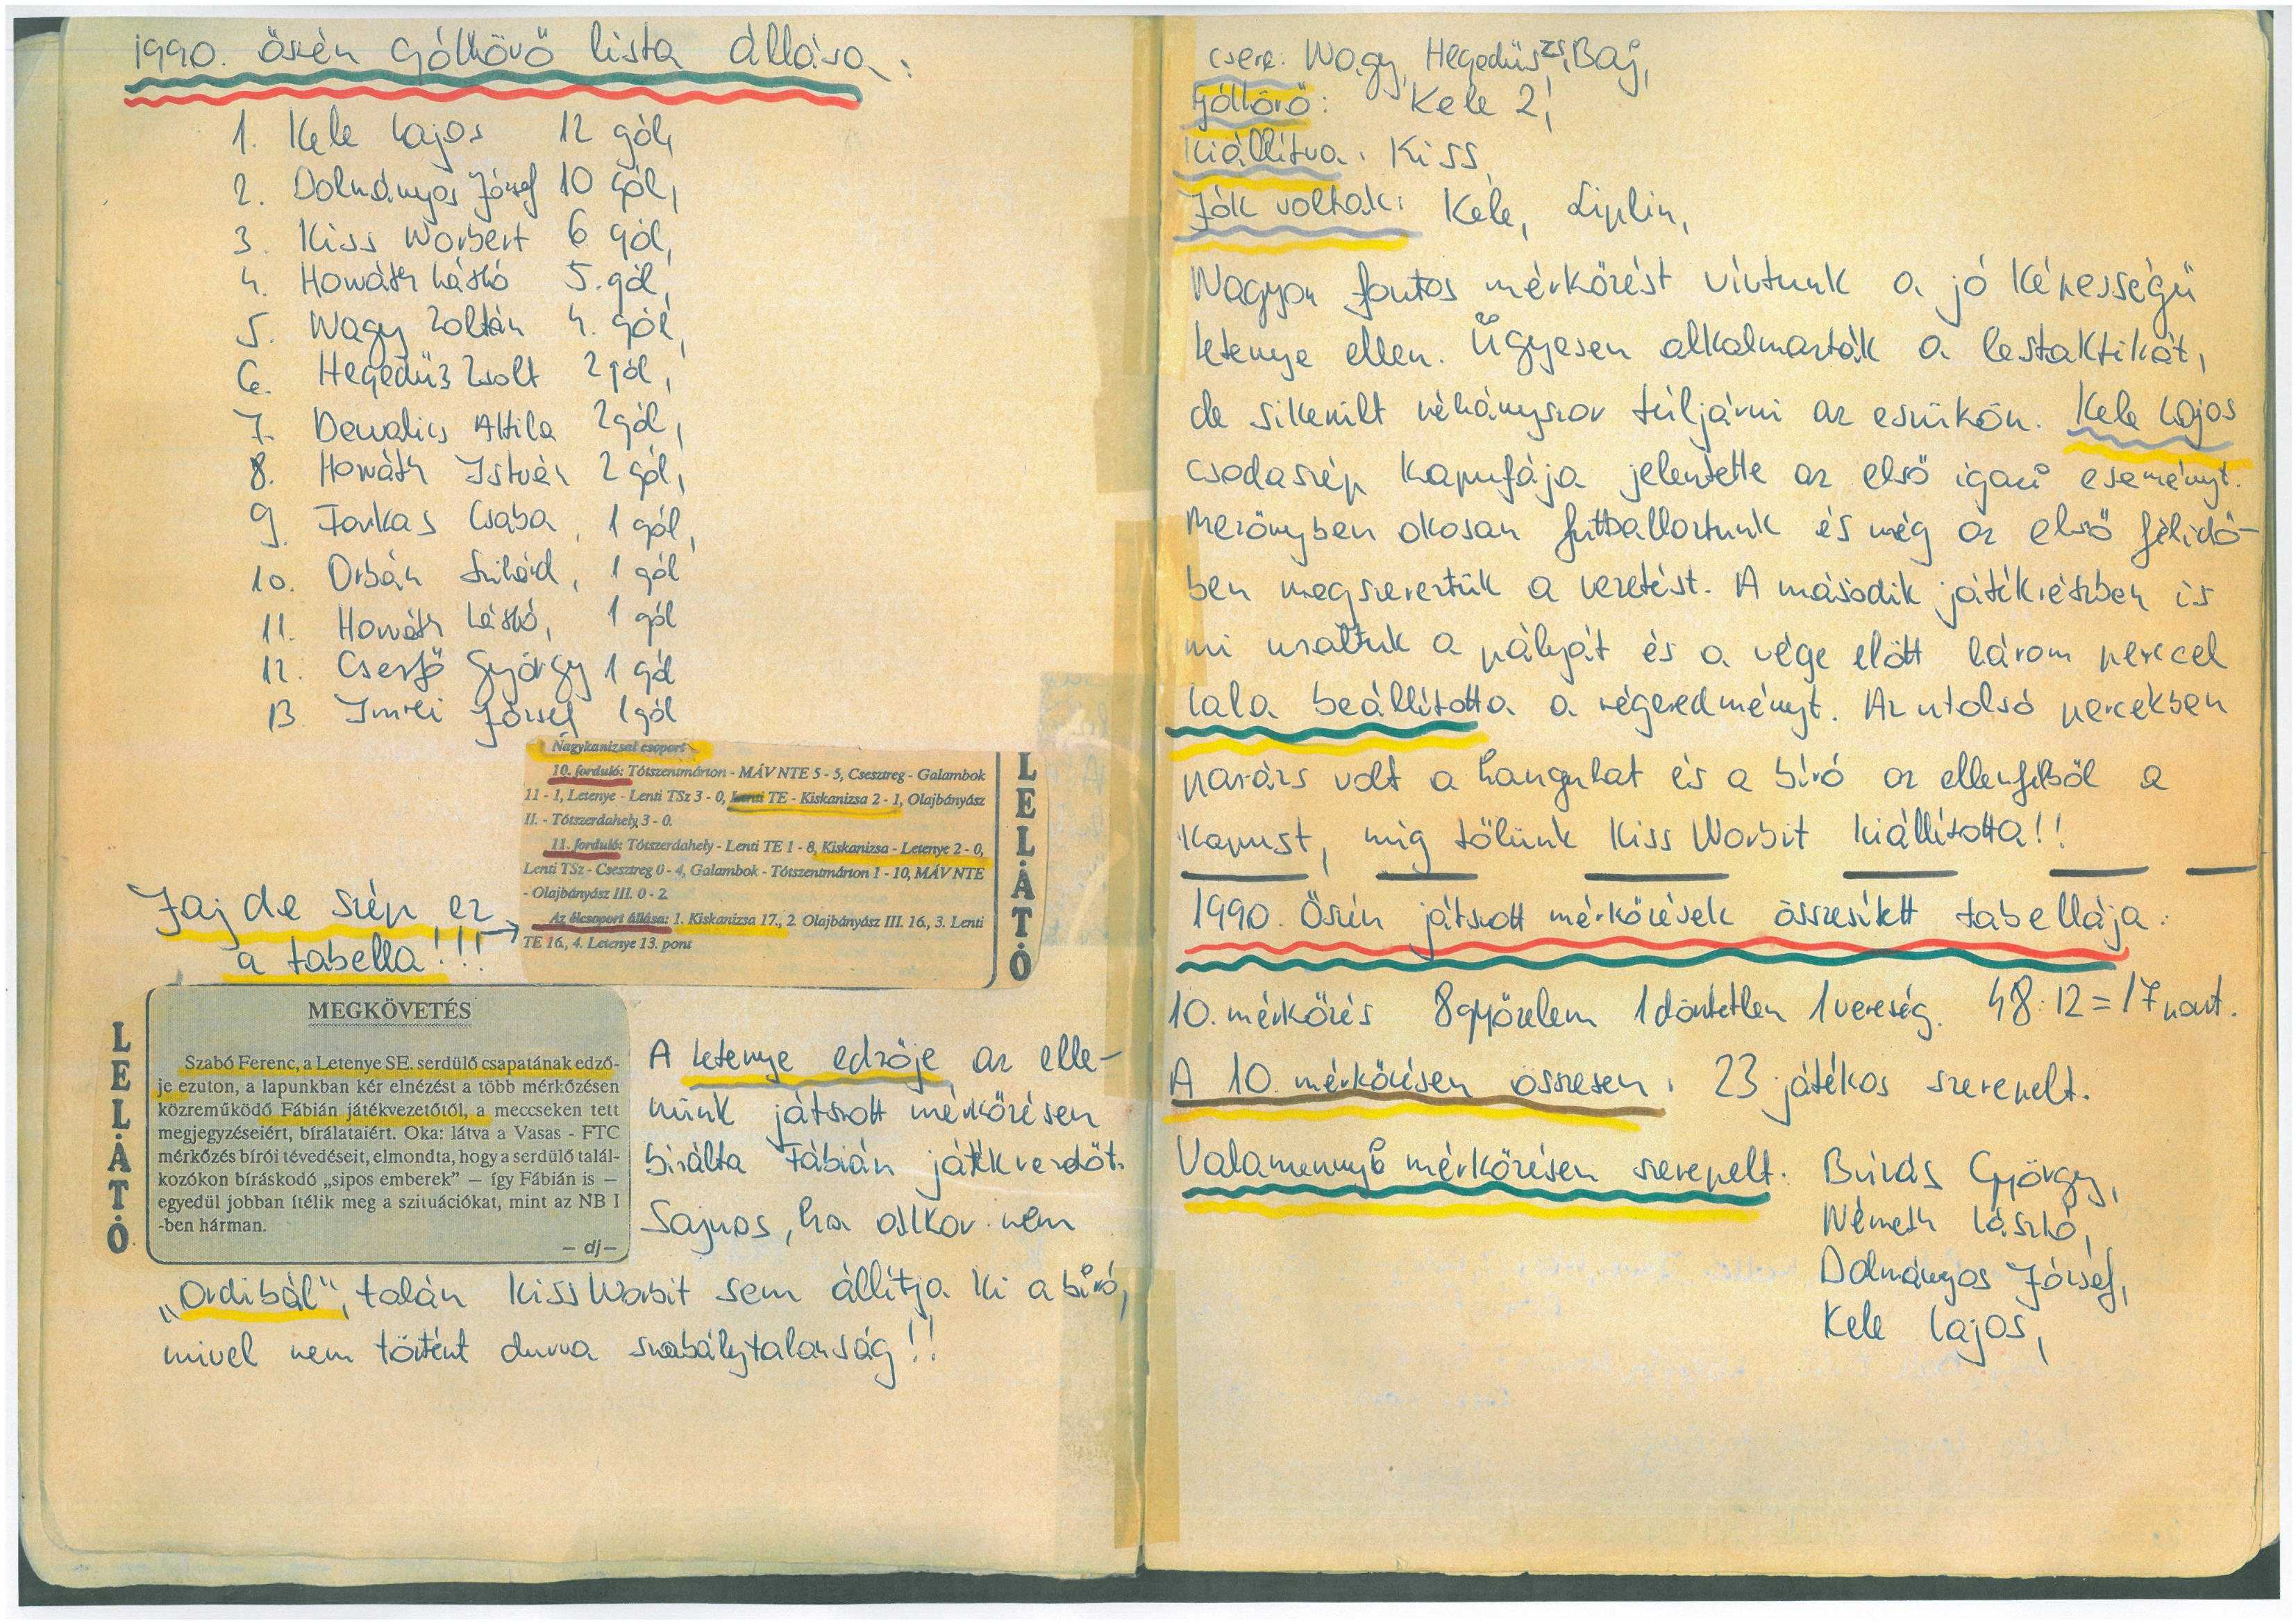 1990. őszén góllövő lista állása:
1. Kele Lajos 12 gól,
2. Dolmányos József 10 gól,
3. Kiss Norbert 6 gól,
4. Horváth László 5. gól,
5. Nagy Zoltán 4. gól,
6. Hegedüs Zsolt 2 gól,
7. Dervalics Attila 2 gól,
8. Horváth István 2 gól,
9. Farkas Csaba, 1 gól,
10. Orbán Szilárd, 1 gól
11. Horváth László, 1 gól
12. Cserfő György 1 gól
13. Imrei József 1 gól
Nagykanizsai csoport
10. forduló: Tótszentmárton - MÁV NTE 5 - 5, Csesztreg - Galambok
11 - 1, Letenye - Lenti TSz 3 - 0, Lenti TE - Kiskanizsa 2 - 1, Olajbányász
II. - Tótszerdahely 3 - 0.
11. forduló: Tótszerdahely - Lenti TE 1 - 8, Kiskanizsa - Letenye 2 - 0,
Lenti TSz - Csesztreg 0 - 4, Galambok - Tótszentmárton 1 - 10, MÁV NTE
- Olajbányász III. 0 - 2.
Az élcsoport állása: 1. Kiskanizsa 17., 2. Olajbányász III. 16., 3. Lenti
TE 16., 4. Letenye 13. pont
LELÁTÓ
Jaj de szép ez
a tabella!!!
LELÁTÓ
MEGKÖVETÉS
Szabó Ferenc, a Letenye SE. serdülő csapatának edző-
je ezuton, a lapunkban kér elnézést a több mérkőzésen
közreműködő Fábián játékvezetőtől, a meccseken tett
megjegyzéseiért, bírálataiért. Oka: látva a Vasas - FTC
mérkőzés bírói tévedéseit, elmondta, hogy a serdülő talál-
kozókon bíráskodó „sipos emberek" — így Fábián is —
egyedül jobban ítélik meg a szituációkat, mint az NB I
-ben hárman.
— dj—
A Letenye edzője az elle-
nünk játszott mérkőzésen
birálta Fábián játékvezetőt.
Sajnos, ha akkor nem
„Ordibál", talán Kiss Norbit sem állítja ki a bíró,
mivel nem történt durva szabálytalanság!!
csere: Nagy, Hegedüs Zs, Baj,
Góllövő: Kele 2,
Kiállítva: Kiss,
Jók voltak: Kele, Liplin,
Nagyon fontos mérkőzést vívtunk a jó képességű
Letenye ellen. Ügyesen alkalmazták a lestaktikát,
de sikerült néhányszor túljárni az eszükön. Kele Lajos
csodaszép kapufája jelentette az első igazi eseményt.
Mezőnyben okosan futballoztunk és még az első félidő-
ben megszereztük a vezetést. A második játékrészben is
mi uraltuk a pályát és a vége előtt három percel
Lala beállította a végeredményt. Az utolsó percekben
parázs volt a hangulat és a bíró az ellenfélből a
kapust, míg tőlünk Kiss Norbit kiállította!!
1990. Őszén játszott mérkőzések összesített tabellája:
10. mérkőzés 8 győzelem 1 döntetlen 1 vereség. 48:12=17 pont.
A 10. mérkőzésen összesen: 23 játékos szerepelt.
Valamennyi mérkőzésen szerepelt: Buvás György,
Németh László,
Dolmányos József,
Kele Lajos,